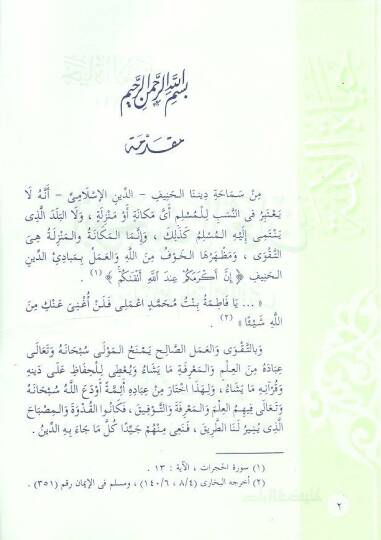 بسم الله الرحمن الرحيم
مقدمة
مِنْ سَمَاحَةِ دِينِنَا الحَنِيفِ - الدِّينِ الإِسْلَامِىِّ - أَنَّهُ لَا
يَعْتَبِرُ فِى النَّسَبِ لِلْمُسْلِمِ أَىَّ مَكَانَةٍ أَوْ مَنْزِلَةٍ ، وَلَا البَلَدَ الَّذِى
يَنْتَمِى إِلَيْهِ المُسْلِمُ كَذَلِكَ ، وَإِنَّمَا المَكَانَةُ وَالمَنْزِلَةُ هِىَ
التَّقْوَى ، وَمَظْهَرُهَا الخَوْفُ مِنَ اللهِ وَالعَمَلُ بِمَبَادِئِ الدِّينِ
الحَنِيفِ ﴿ إِنَّ أَكْرَمَكُمْ عِندَ اللَّهِ أَتْقَىٰكُمْ ﴾ (١) .
« ... يَا فَاطِمَةُ بِنْتُ مُحَمَّدٍ اعْمَلِى فَلَنْ أُغْنِىَ عَنْكِ مِنَ
اللهِ شَيْئًا » (٢) .
وَبِالتَّقْوَى وَالعَمَلِ الصَّالِحِ يَمْنَحُ المَوْلَى سُبْحَانَهُ وَتَعَالَى
عِبَادَهُ مِنَ العِلْمِ وَالمَعْرِفَةِ مَا يَشَاءُ وَيُعْطِى لِلْحِفَاظِ عَلَى دِينِهِ
وَقُرْآنِهِ مَا يَشَاءُ ، وَلِهَذَا اخْتَارَ مِنْ عِبَادِهِ أَئِمَّةً أَوْدَعَ اللهُ سُبْحَانَهُ
وَتَعَالَى فِيهِمُ العِلْمَ وَالمَعْرِفَةَ وَالتَّوْفِيقَ ، فَكَانُوا القُدْوَةَ وَالمِصْبَاحَ
الَّذِى يُنِيرُ لَنَا الطَّرِيقَ ، فَنَعِى مِنْهُمْ جَيِّدًا كُلَّ مَا جَاءَ بِهِ الدِّينُ .
(١) سورة الحجرات ، الآية : ١٣ .
(٢) أخرجه البخارى (٨/٤ ، ١٤٠/٦) ، ومسلم فى الإيمان رقم (٣٥١) .
٢